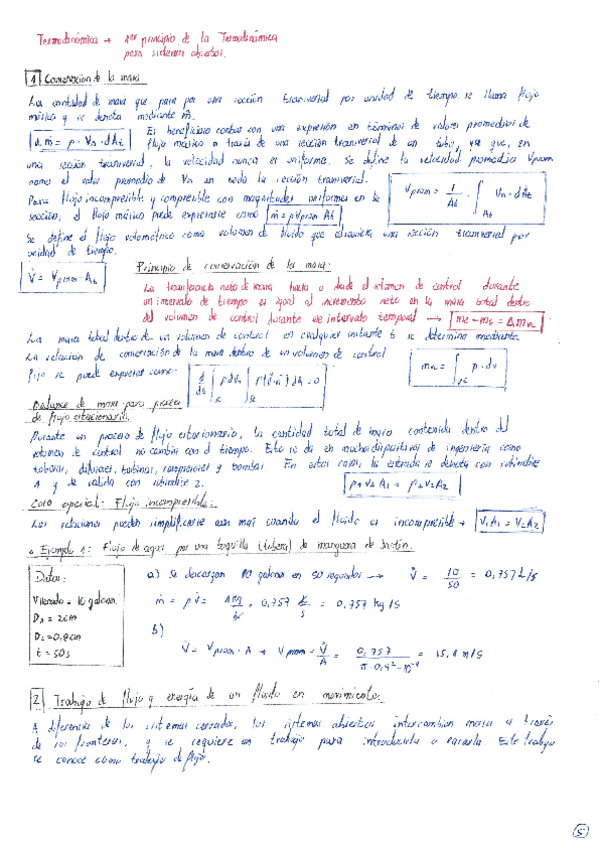 Termodinámica → 1er principio de la Termodinámica
para sistemas abiertos.
1 Conservación de la masa
La cantidad de masa que pasa por una sección transversal por unidad de tiempo se llama flujo
másico y se denota mediante ṁ.
δṁ = ρ · Vn · dAt
Es beneficioso contar con una expresión en términos de valores promedios de
flujo másico a través de una sección transversal de un tubo, ya que, en
una sección transversal, la velocidad nunca es uniforme. Se define la velocidad promedio Vprom
como el valor promedio de Vn en toda la sección transversal.
Vprom = 1/At · ∫At Vn · dAt
Para flujo incompresible y compresible con magnitudes uniformes en la
sección, el flujo másico puede expresarse como ṁ = ρ Vprom At
Se define el flujo volumétrico como volumen de fluido que una sección transversal por
unidad de tiempo.
V̇ = Vprom · At
Principio de conservación de la masa:
La transferencia neta de masa hacia o desde el volumen de control durante
un intervalo de tiempo es igual al incremento neto en la masa total dentro
del volumen de control durante ese intervalo temporal → me - ms = Δmvc
La masa total dentro de un volumen de control en cualquier instante t se determina mediante
La relación de conservación de la masa dentro de un volumen de control
fijo se puede expresar como:
mvc = ∫vc ρ · dv
Balance de masa para procesos
de flujo estacionario.
Durante un proceso de flujo estacionario, la cantidad total de masa contenida dentro del
volumen de control no cambia con el tiempo. Esto se da en muchos dispositivos de ingeniería como
toberas, difusores, turbinas, compresores y bombas. En estos casos, la entrada se denota con subíndice
1 y de salida con subíndice 2.
ρ1 v1 A1 = ρ2 v2 A2
Caso especial: Flujo incompresible:
Las relaciones pueden simplificarse aún más cuando el fluido es incompresible → V1A1 = V2A2
Ejemplo 1: Flujo de agua por una boquilla (tobera) de manguera de jardín.
Datos:
Vllenado = 10 galones
D1 = 2cm
D2 = 0.8cm
t = 50s
a) Se descargan 10 galones en 50 segundos → V̇ = 10/50 = 0,757 L/s
ṁ = ρ V̇ = 1 kg/L · 0,757 L/s = 0,757 kg/s
b)
V̇ = Vprom · A → Vprom = V̇/A = 0,757 / π · 0,4² · = 15,1 m/s
2 Trabajo de flujo y energía de un fluido en movimiento.
A diferencia de los sistemas cerrados, los sistemas abiertos intercambian masa a través
de sus fronteras, y se requiere un trabajo para introducirla o sacarla. Este trabajo
se conoce como trabajo de flujo.
5